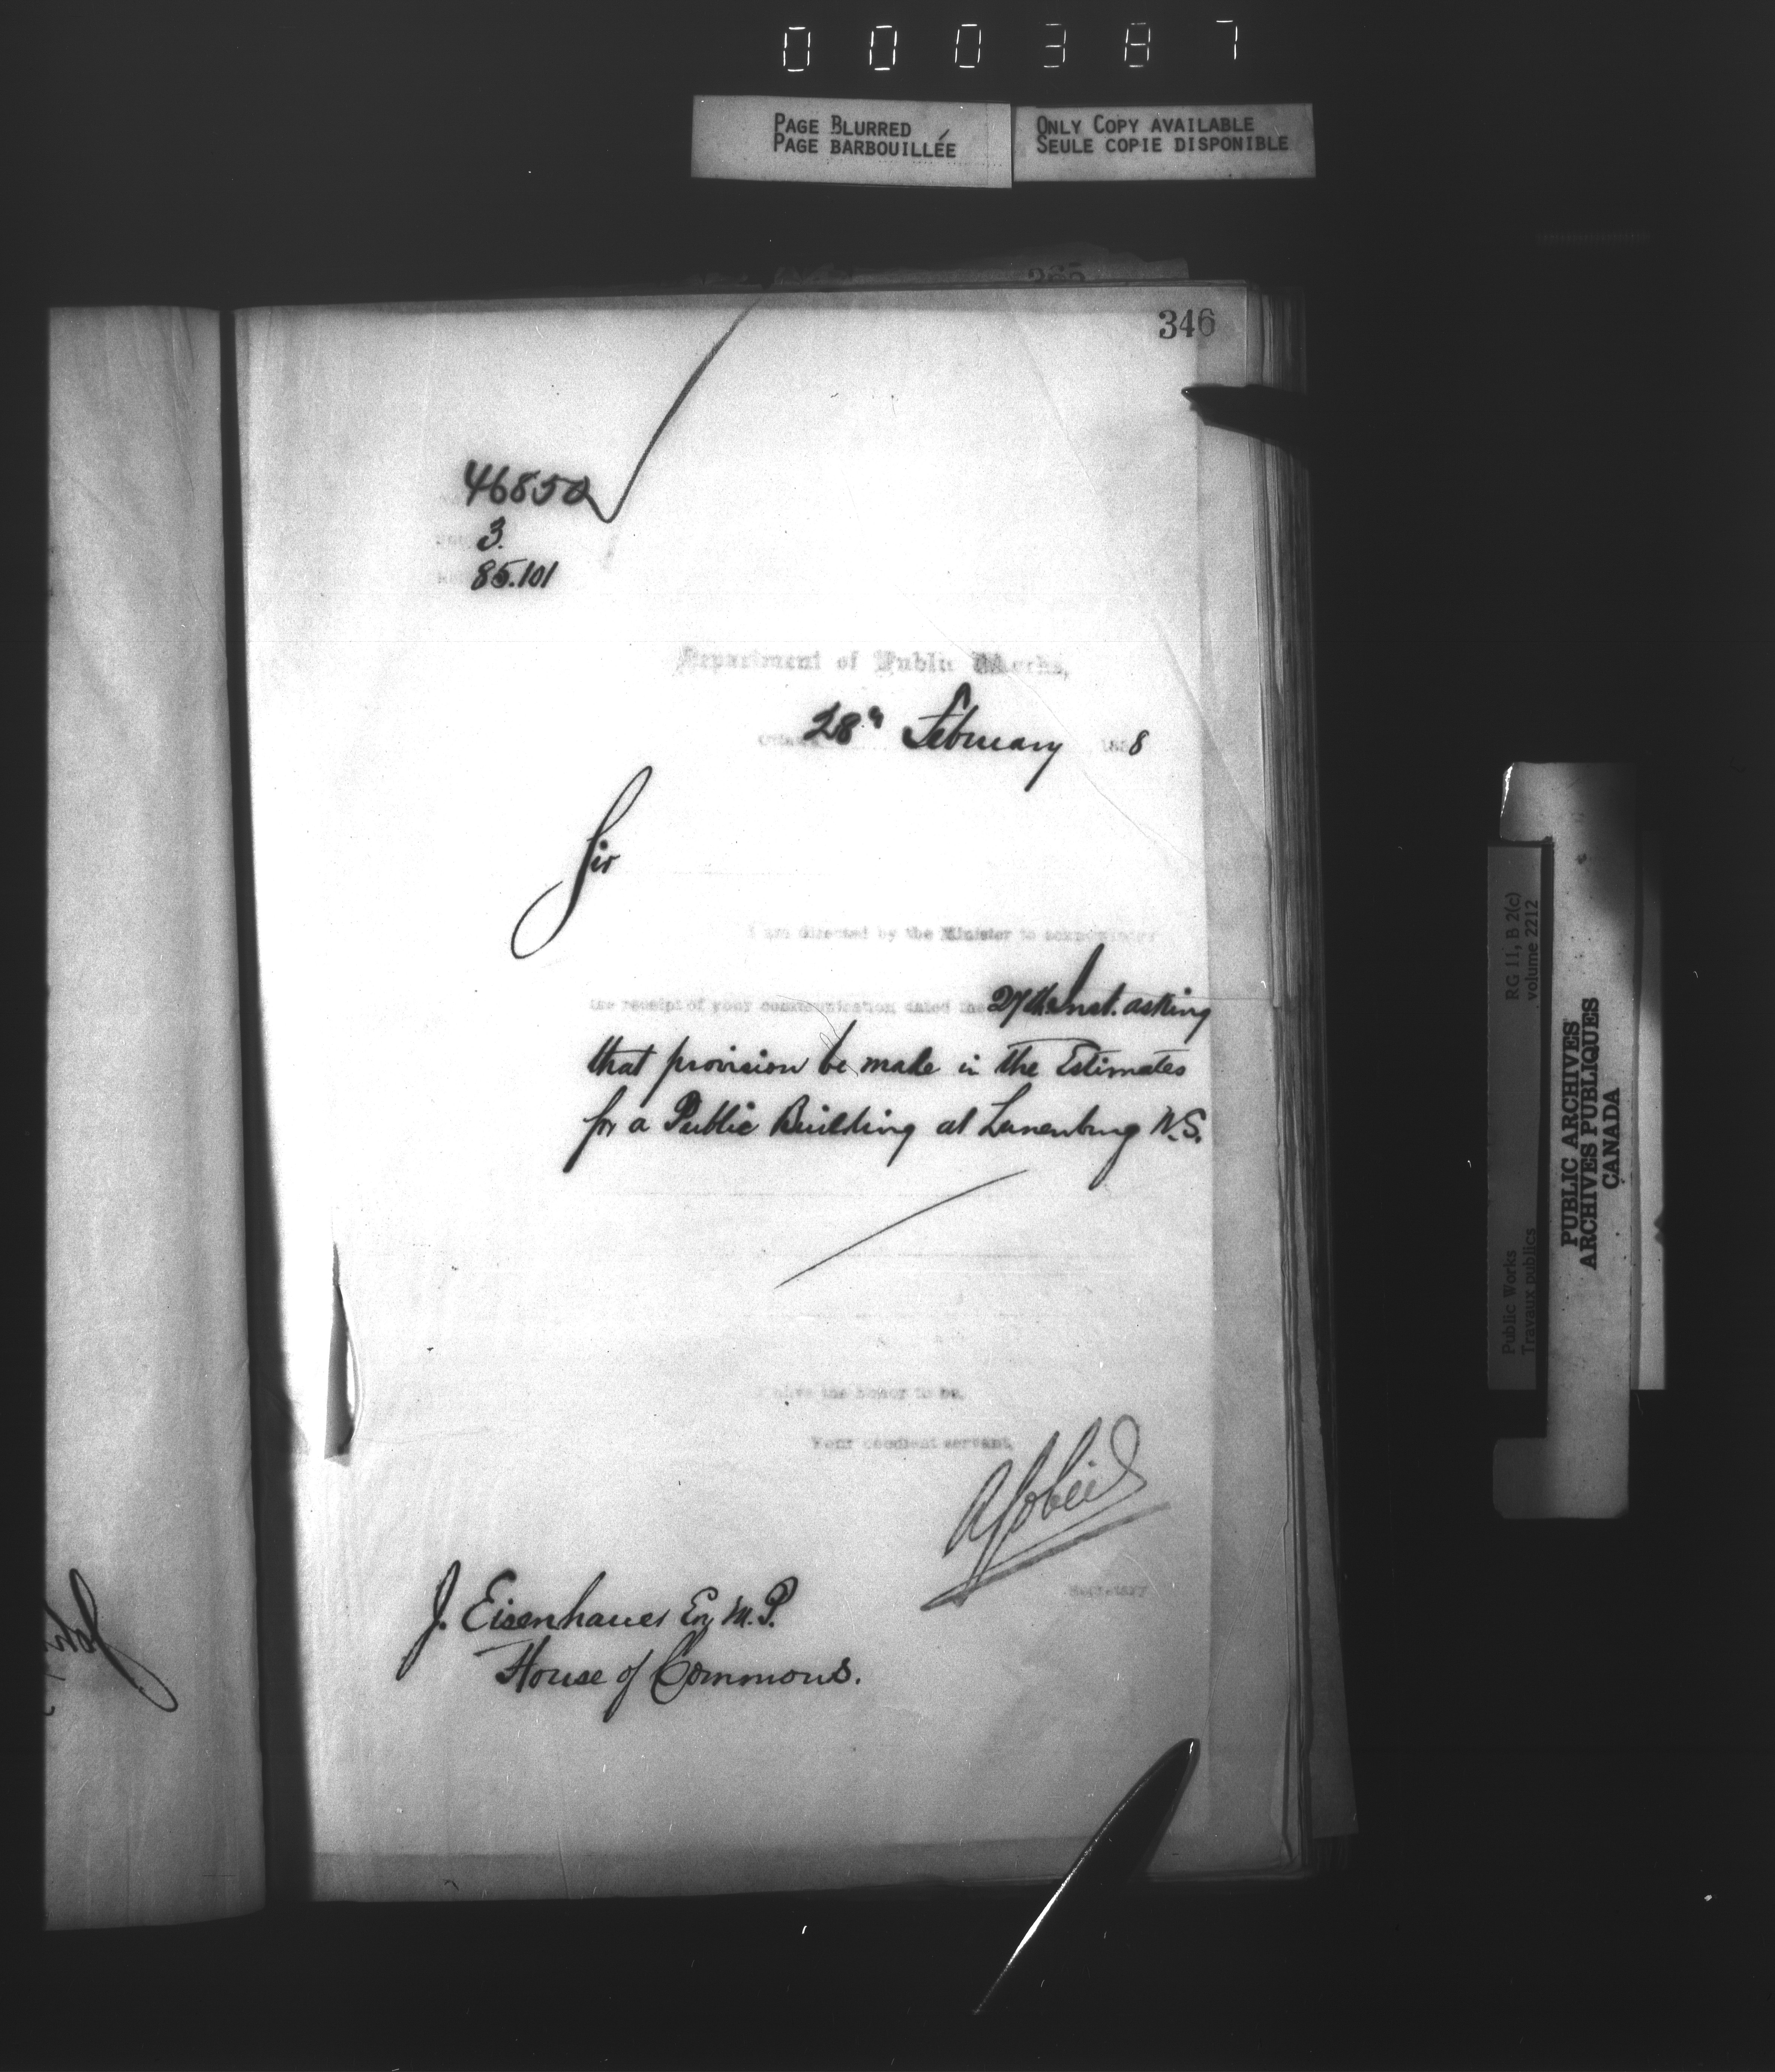 000387
PAGE BLURRED
PAGE BARBOUILLÉE
ONLY COPY AVAILABLE
SEULE COPIE DISPONIBLE
346
46850
3.
85.101
Department of Public Works,
28th February 1888
Sir
I am directed by the Minister to acknowledge
the receipt of your communication dated the 27th Inst. asking
that provision be made in the Estimates
for a Public Building at Lunenburg N.S.
I have the honor to be,
Your obedient servant,
A Gobeil
Secretary
J. Eisenhauer Esq M.P.
House of Commons.
RG 11, B 2(c)
volume 2212
Public Works
Travaux publics
PUBLIC ARCHIVES
ARCHIVES PUBLIQUES
CANADA